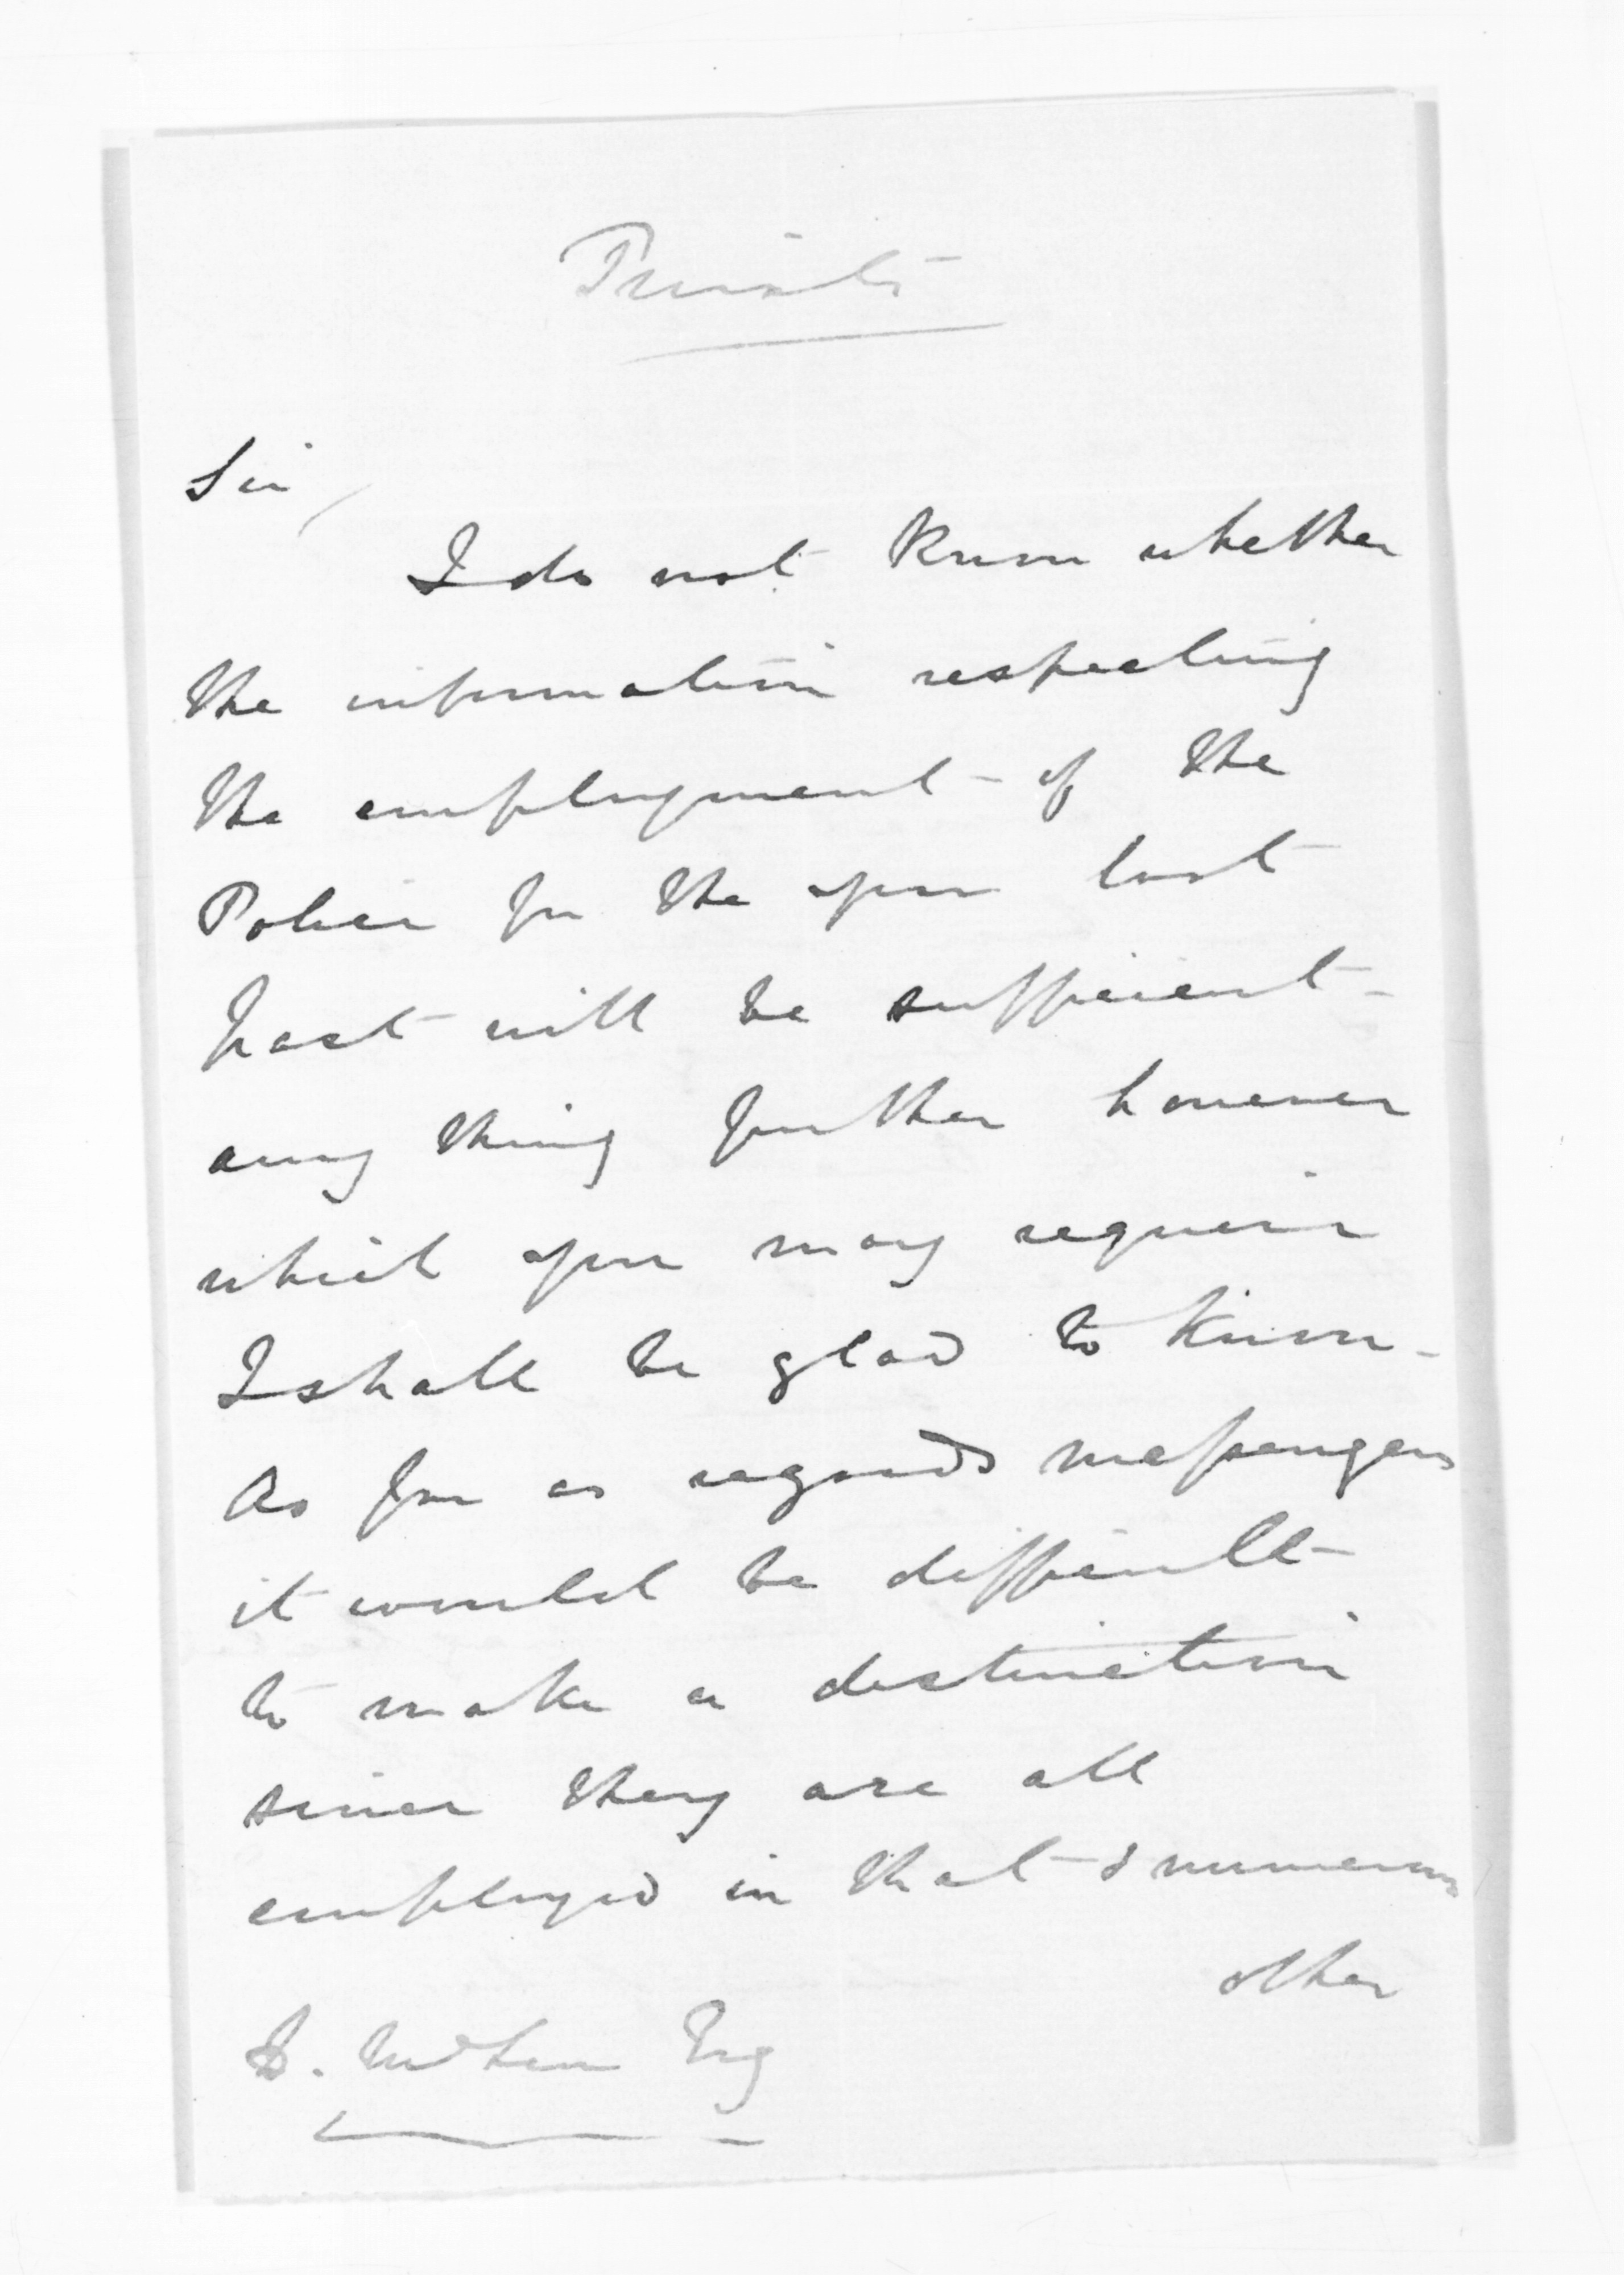 Private
Sir,
I do not know whether
the information respecting
the employment of the
Police for the year last
past will be sufficient -
any thing further however
which you may require
I shall be glad to know -
As far as regards messengers
it would be difficult
to make a distinction
since they are all
employed in that & numerous
other
D. McLean Esq